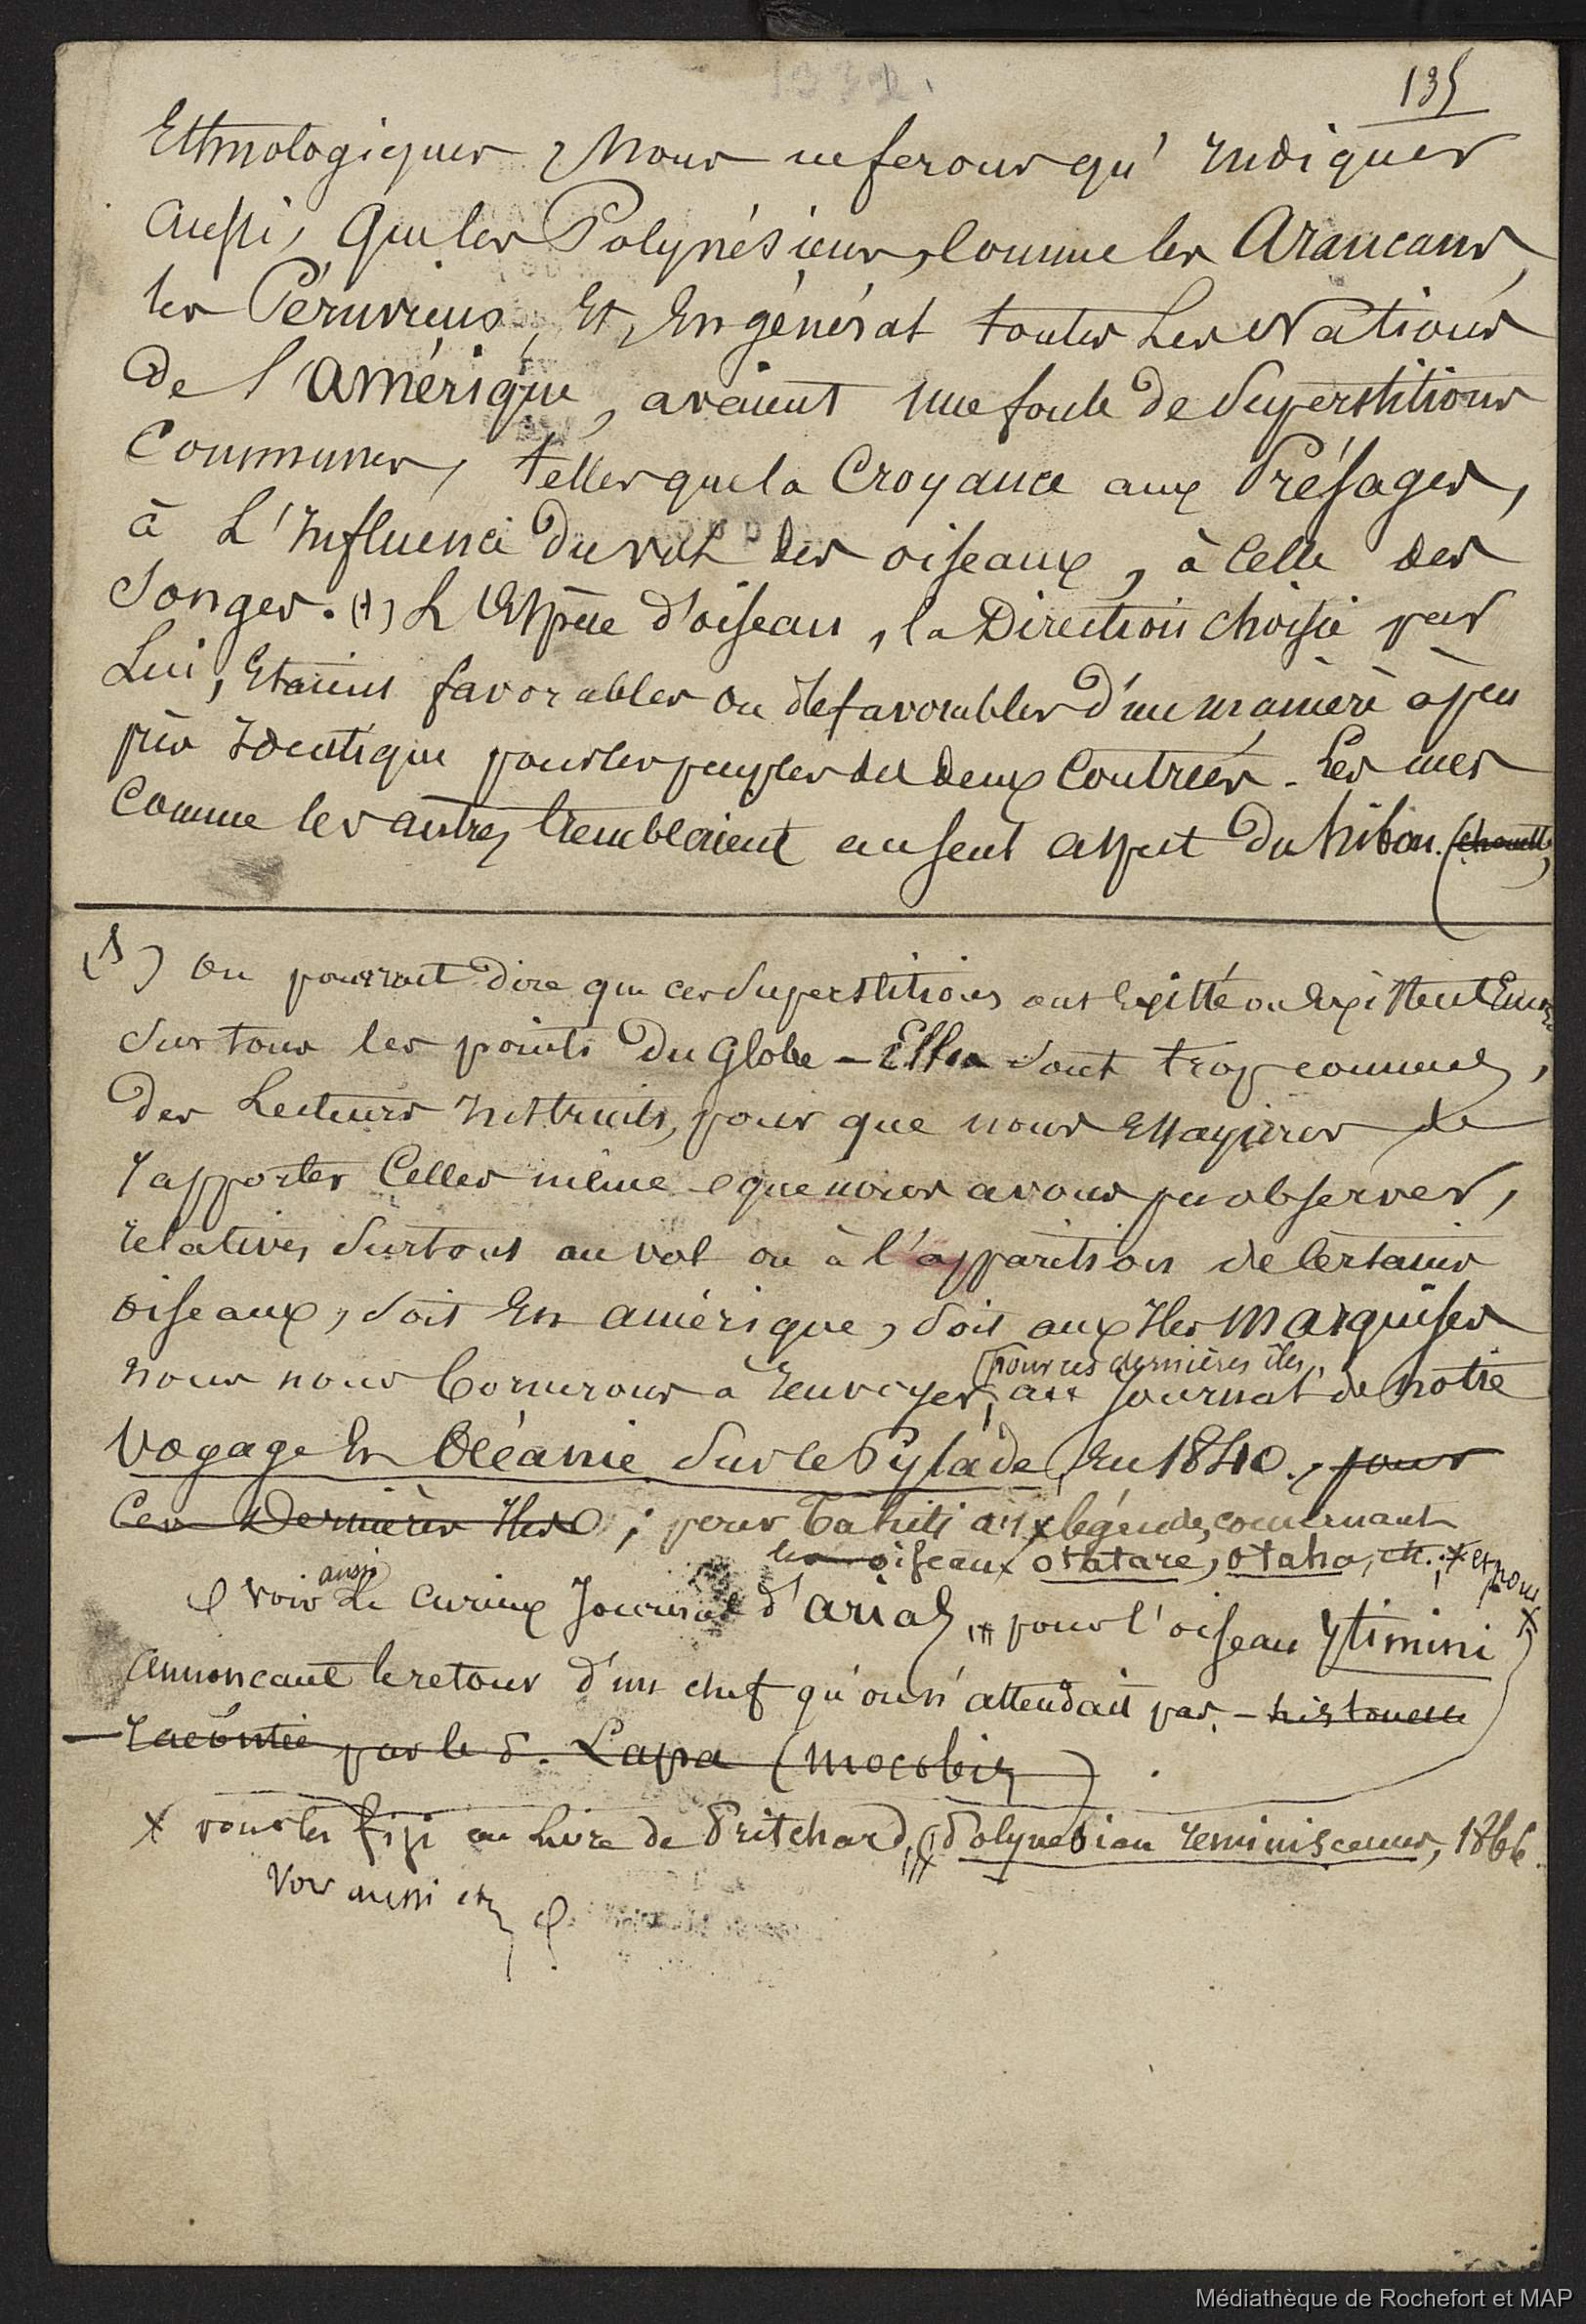 135
Ethnologiques, Nous ne ferons qu'indiquer
aussi, que les Polynésiens, comme les Araucans,
les Péruviens, Et, En général toutes Les Nations
de l'amérique, avaient une foule de Superstitions
Communes, telles que la Croyance aux Présages,
à L'Influence du vol des oiseaux, à celle des
Songes. (1) L'Espèce d'oiseau, la Direction choisie par
Lui, Etaient favorables ou défavorables d'une manière à peu
près Identique pour les peuples des deux Contrées. Les unes
Comme les autres, trembleaient au seul aspect du hibou. (chouette)
(1) On pourrait Dire que ces Superstitions ont Existé ou Existent Encore
Sur tous les points Du Globe – Elles sont trop connues,
des Lecteurs Instruits, pour que nous Essayions de
rapporter Celles même que nous avons pu observer,
relatives Surtout au vol ou à l'apparition de certains
oiseaux, soit En amérique, soit aux Iles Marquises
(pour ces dernières îles,
nous nous bornerons à renvoyer, au Journal de notre
Voyage En Océanie Sur le Pylade, En 1840., pour
Ces Dernières Iles ; pour Tahiti aux légendes, concernant
les oiseaux otatare, otaha, etc.; x et pour
x
voir aussi Le curieux Journal d'arias, pour l'oiseau ytimini
annoncant le retour d'un chef qu'on n'attendait pas. – histoire
– racontée par le S. Lapa (mocobis) .
x pour les fiji au Livre de Pritchard, (Polynesian reminiscences, 1866.
Voir aussi etc,
Médiathèque de Rochefort et MAP